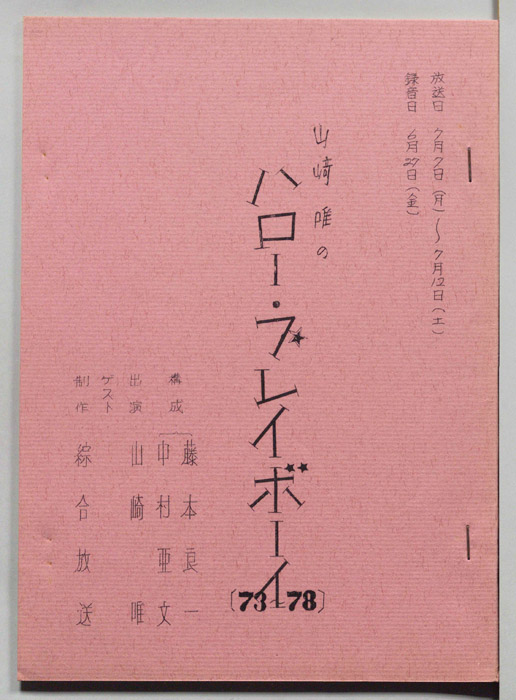 放送日 7月7日(月)〜7月12日(土)
録音日 6月27日(金)
山崎唯の
ハロー・プレイボーイ
〔73〜78〕
構成 藤本良一
中村亜文
出演 山崎唯
ゲスト
制作 綜合放送